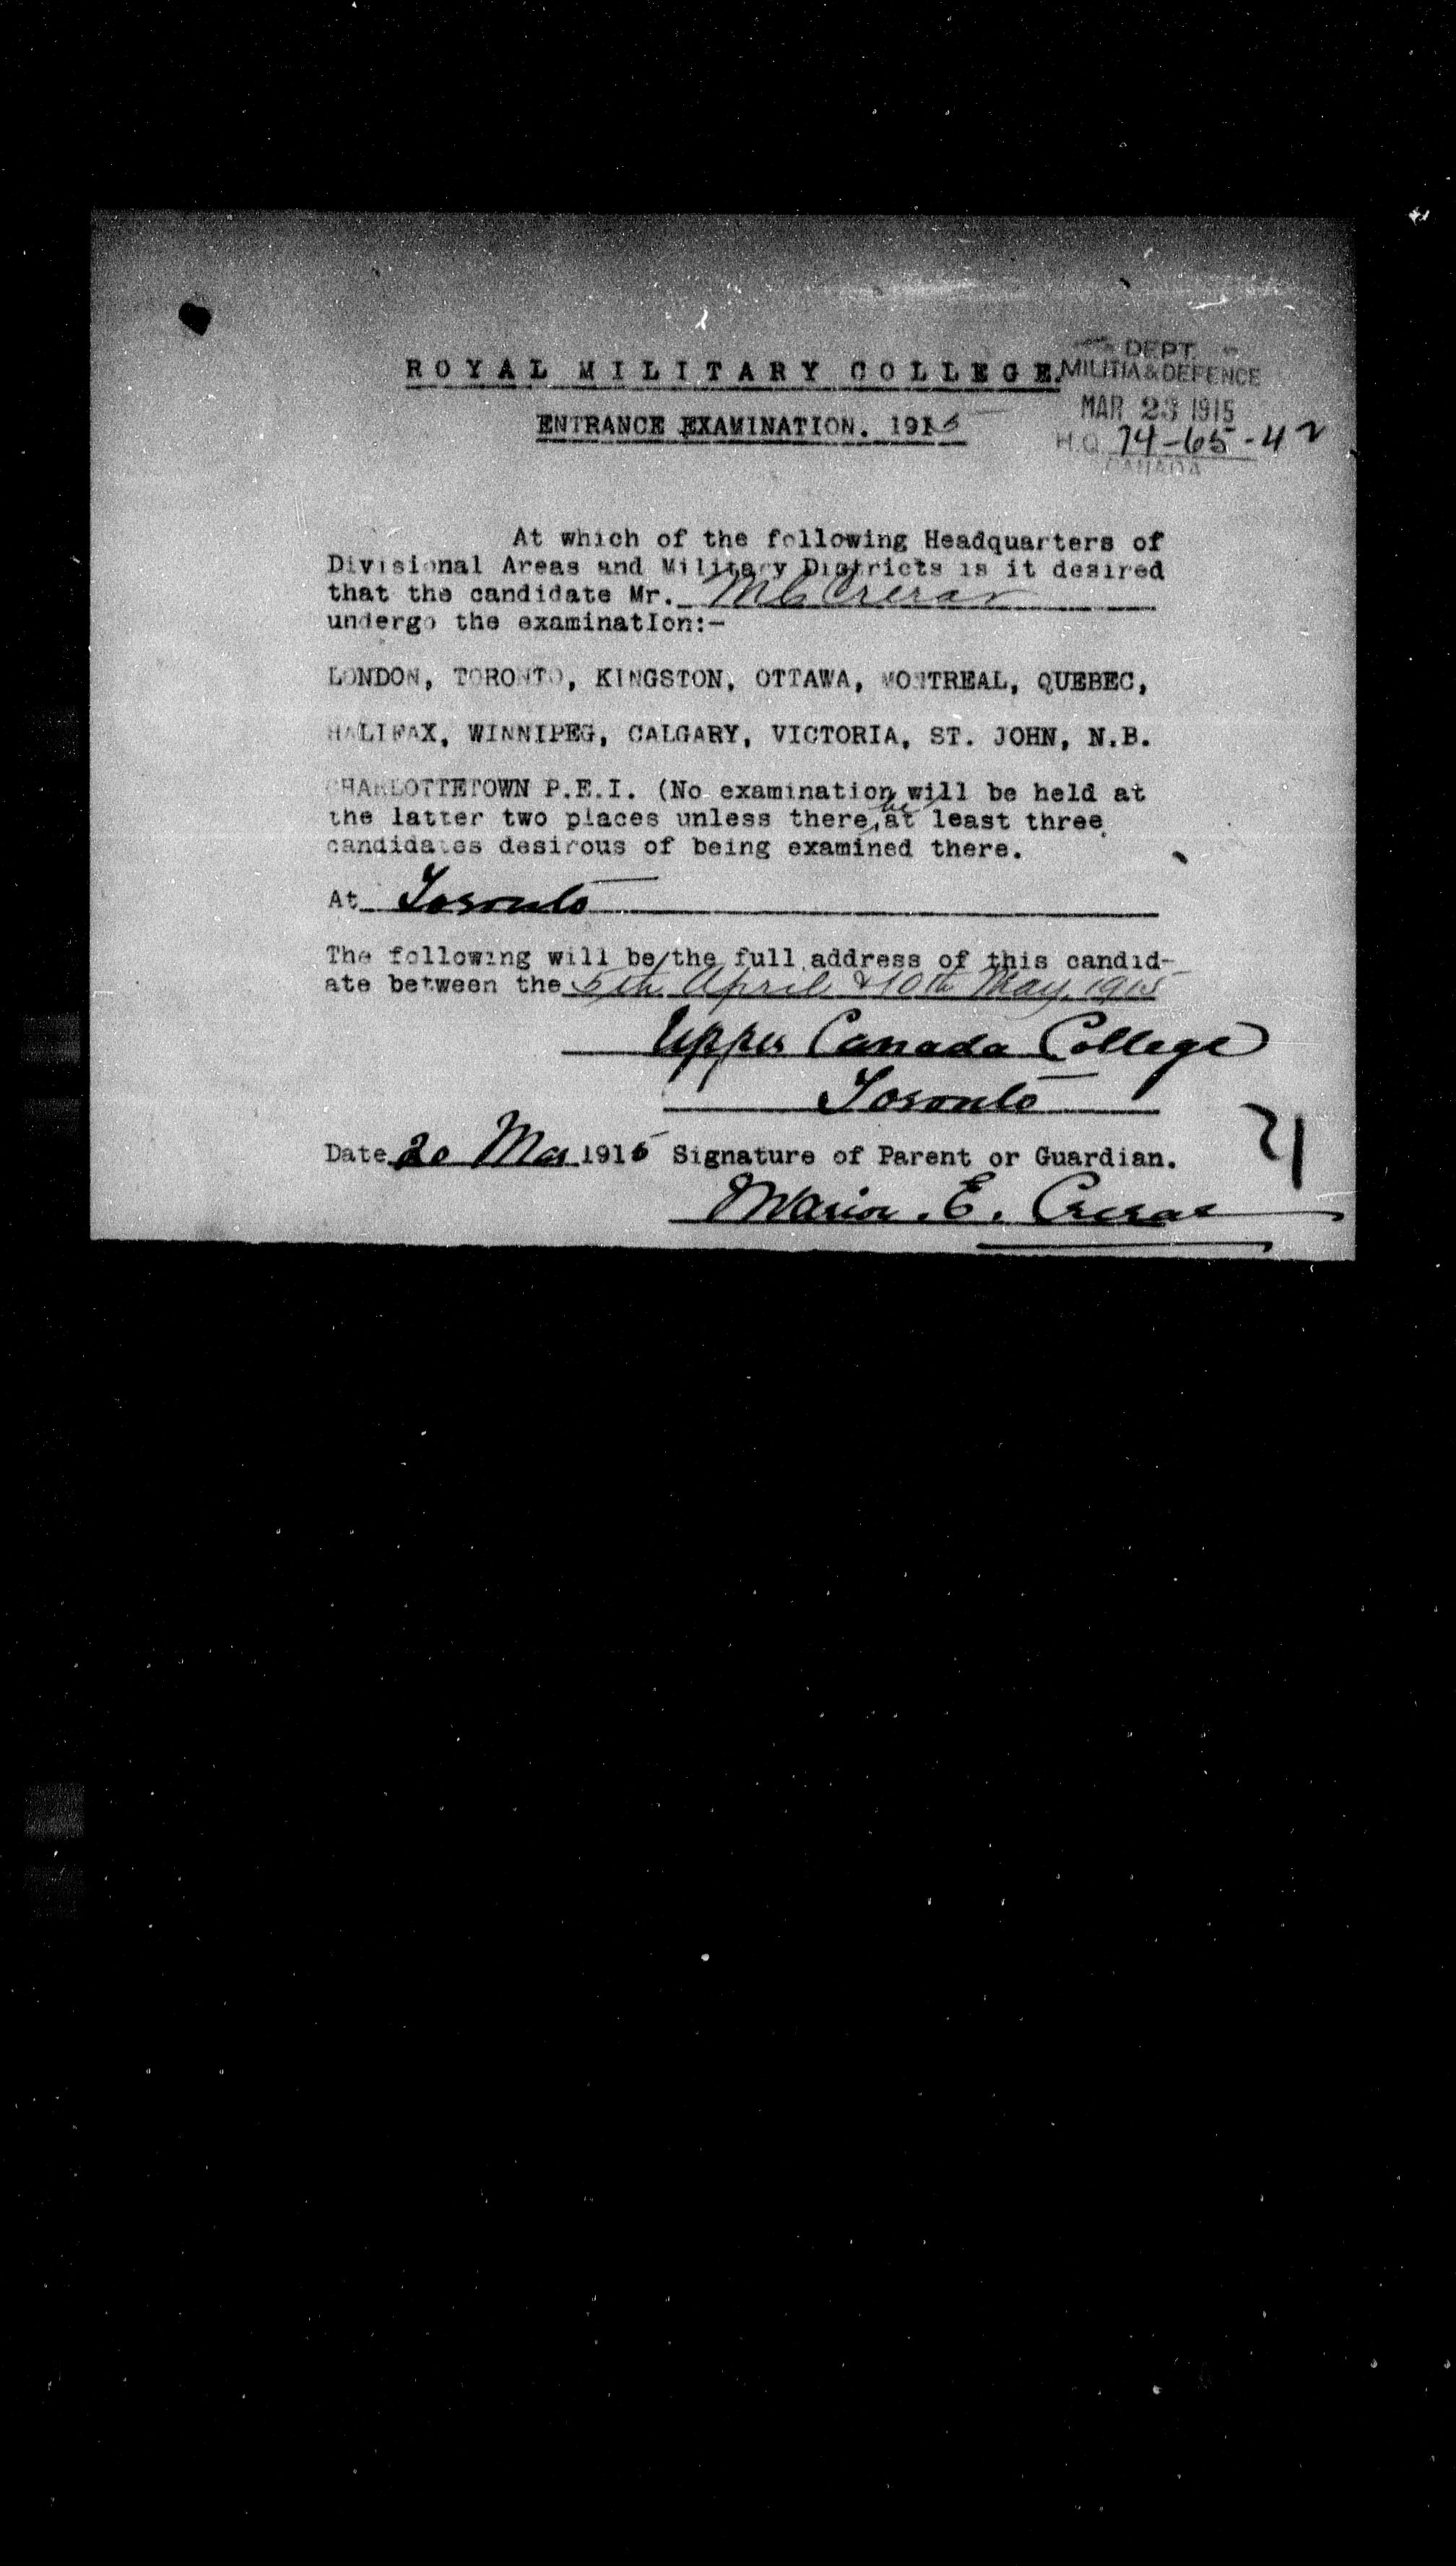 ROYAL MILITARY COLLEGE.
DEPT.
MILITIA & DEFENCE
MAR 23 1915
H.Q. 74-65-42
CANADA
ENTRANCE EXAMINATION. 1915
At which of the following Headquarters of
Divisional Areas and Military Districts is it desired
that the candidate Mr. M C Crerar
undergo the examination:-
LONDON, TORONTO, KINGSTON, OTTAWA, MONTREAL, QUEBEC,
HALIFAX, WINNIPEG, CALGARY, VICTORIA, ST. JOHN, N.B.
CHARLOTTETOWN P.E.I. (No examination will be held at
the latter two places unless there be at least three
candidates desirous of being examined there.
At Toronto
The following will be the full address of this candid-
ate between the 5th April & 10th May 1915
Upper Canada College
Toronto
Date 20 Mar 1915 Signature of Parent or Guardian.
Marion. E. Crerar